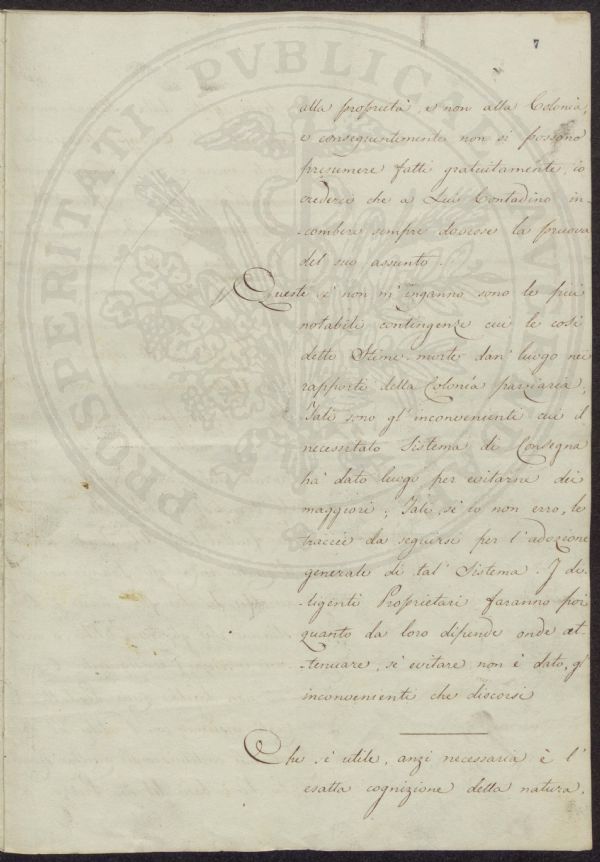 7
PROSPERITATI PUBLICAE AU
alla proprietà, e non alla Colonia,
e conseguentemente non si possono
presumere fatti gratuitamente, io
crederei che a Lui Contadino in-
-combere sempre dovesse la pruova
del suo assunto.
// Queste se non m'inganno sono le più
notabili contingenze cui le così
dette Stime-morte dan' luogo nei
rapporti della Colonia parziaria,
Tali sono gl'inconvenienti cui il
necessitato Sistema di Consegna
ha dato luogo per evitarne dei
maggiori; Tali, se io non erro, le
traccie da seguirsi per l'adozione
generale di tal' Sistema. I di-
-ligenti Proprietari faranno poi
quanto da loro dipende onde at-
-tenuare, se evitare non è dato, gl'
inconvenienti che discorsi
Che se utile, anzi necessaria è l'
esatta cognizione della natura,